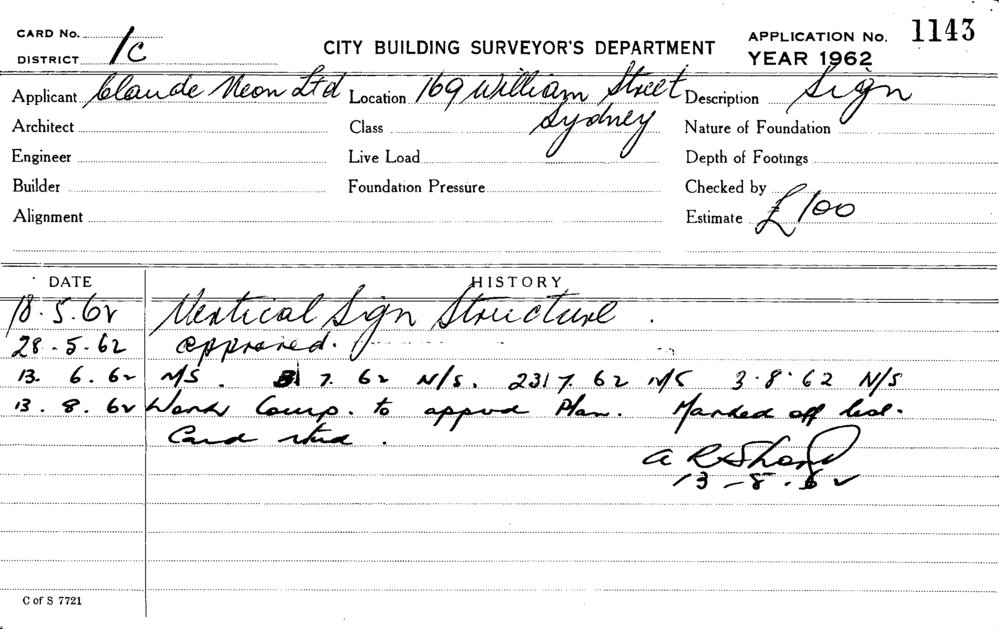 CARD No. APPLICATION No. 1143
DISTRICT 1C CITY BUILDING SURVEYOR'S DEPARTMENT YEAR 1962
Applicant Claude Neon Ltd Location 169 William Street Description Sign
Architect Class Sydney Nature of Foundation
Engineer Live Load Depth of Footings
Builder Foundation Pressure Checked by
Alignment Estimate £100
DATE HISTORY
18.5.62 Vertical Sign Structure.
28-5-62 approved.
13.6.62 N/S. 7.62 N/S. 23/7.62 N/S 3.8.62 N/S
13.8.62 Work Comp. to appvd Plan. Marked off list.
Card rtd.
A R Shand
13-8-62
C of S 7721